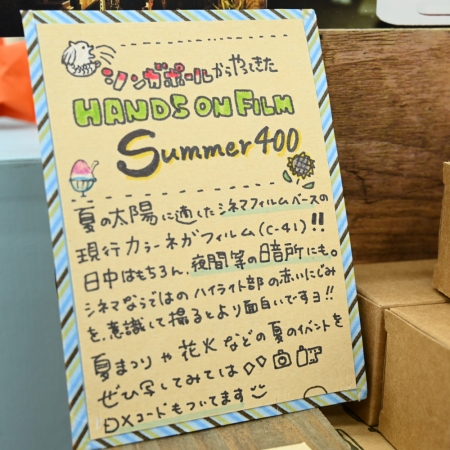 シンガポールからやってきた
HANDS ON FILM
Summer 400
夏の太陽に適したシネマフィルムベースの
現行カラーネガフィルム(C-41)!!
日中はもちろん、夜間等の暗所にも。
シネマならではのハイライト部の赤いにじみ
を、意識して撮るとより面白いですヨ!!
夏まつりや花火などの夏のイベントを
ぜひ写してみては
DXコードもついてます